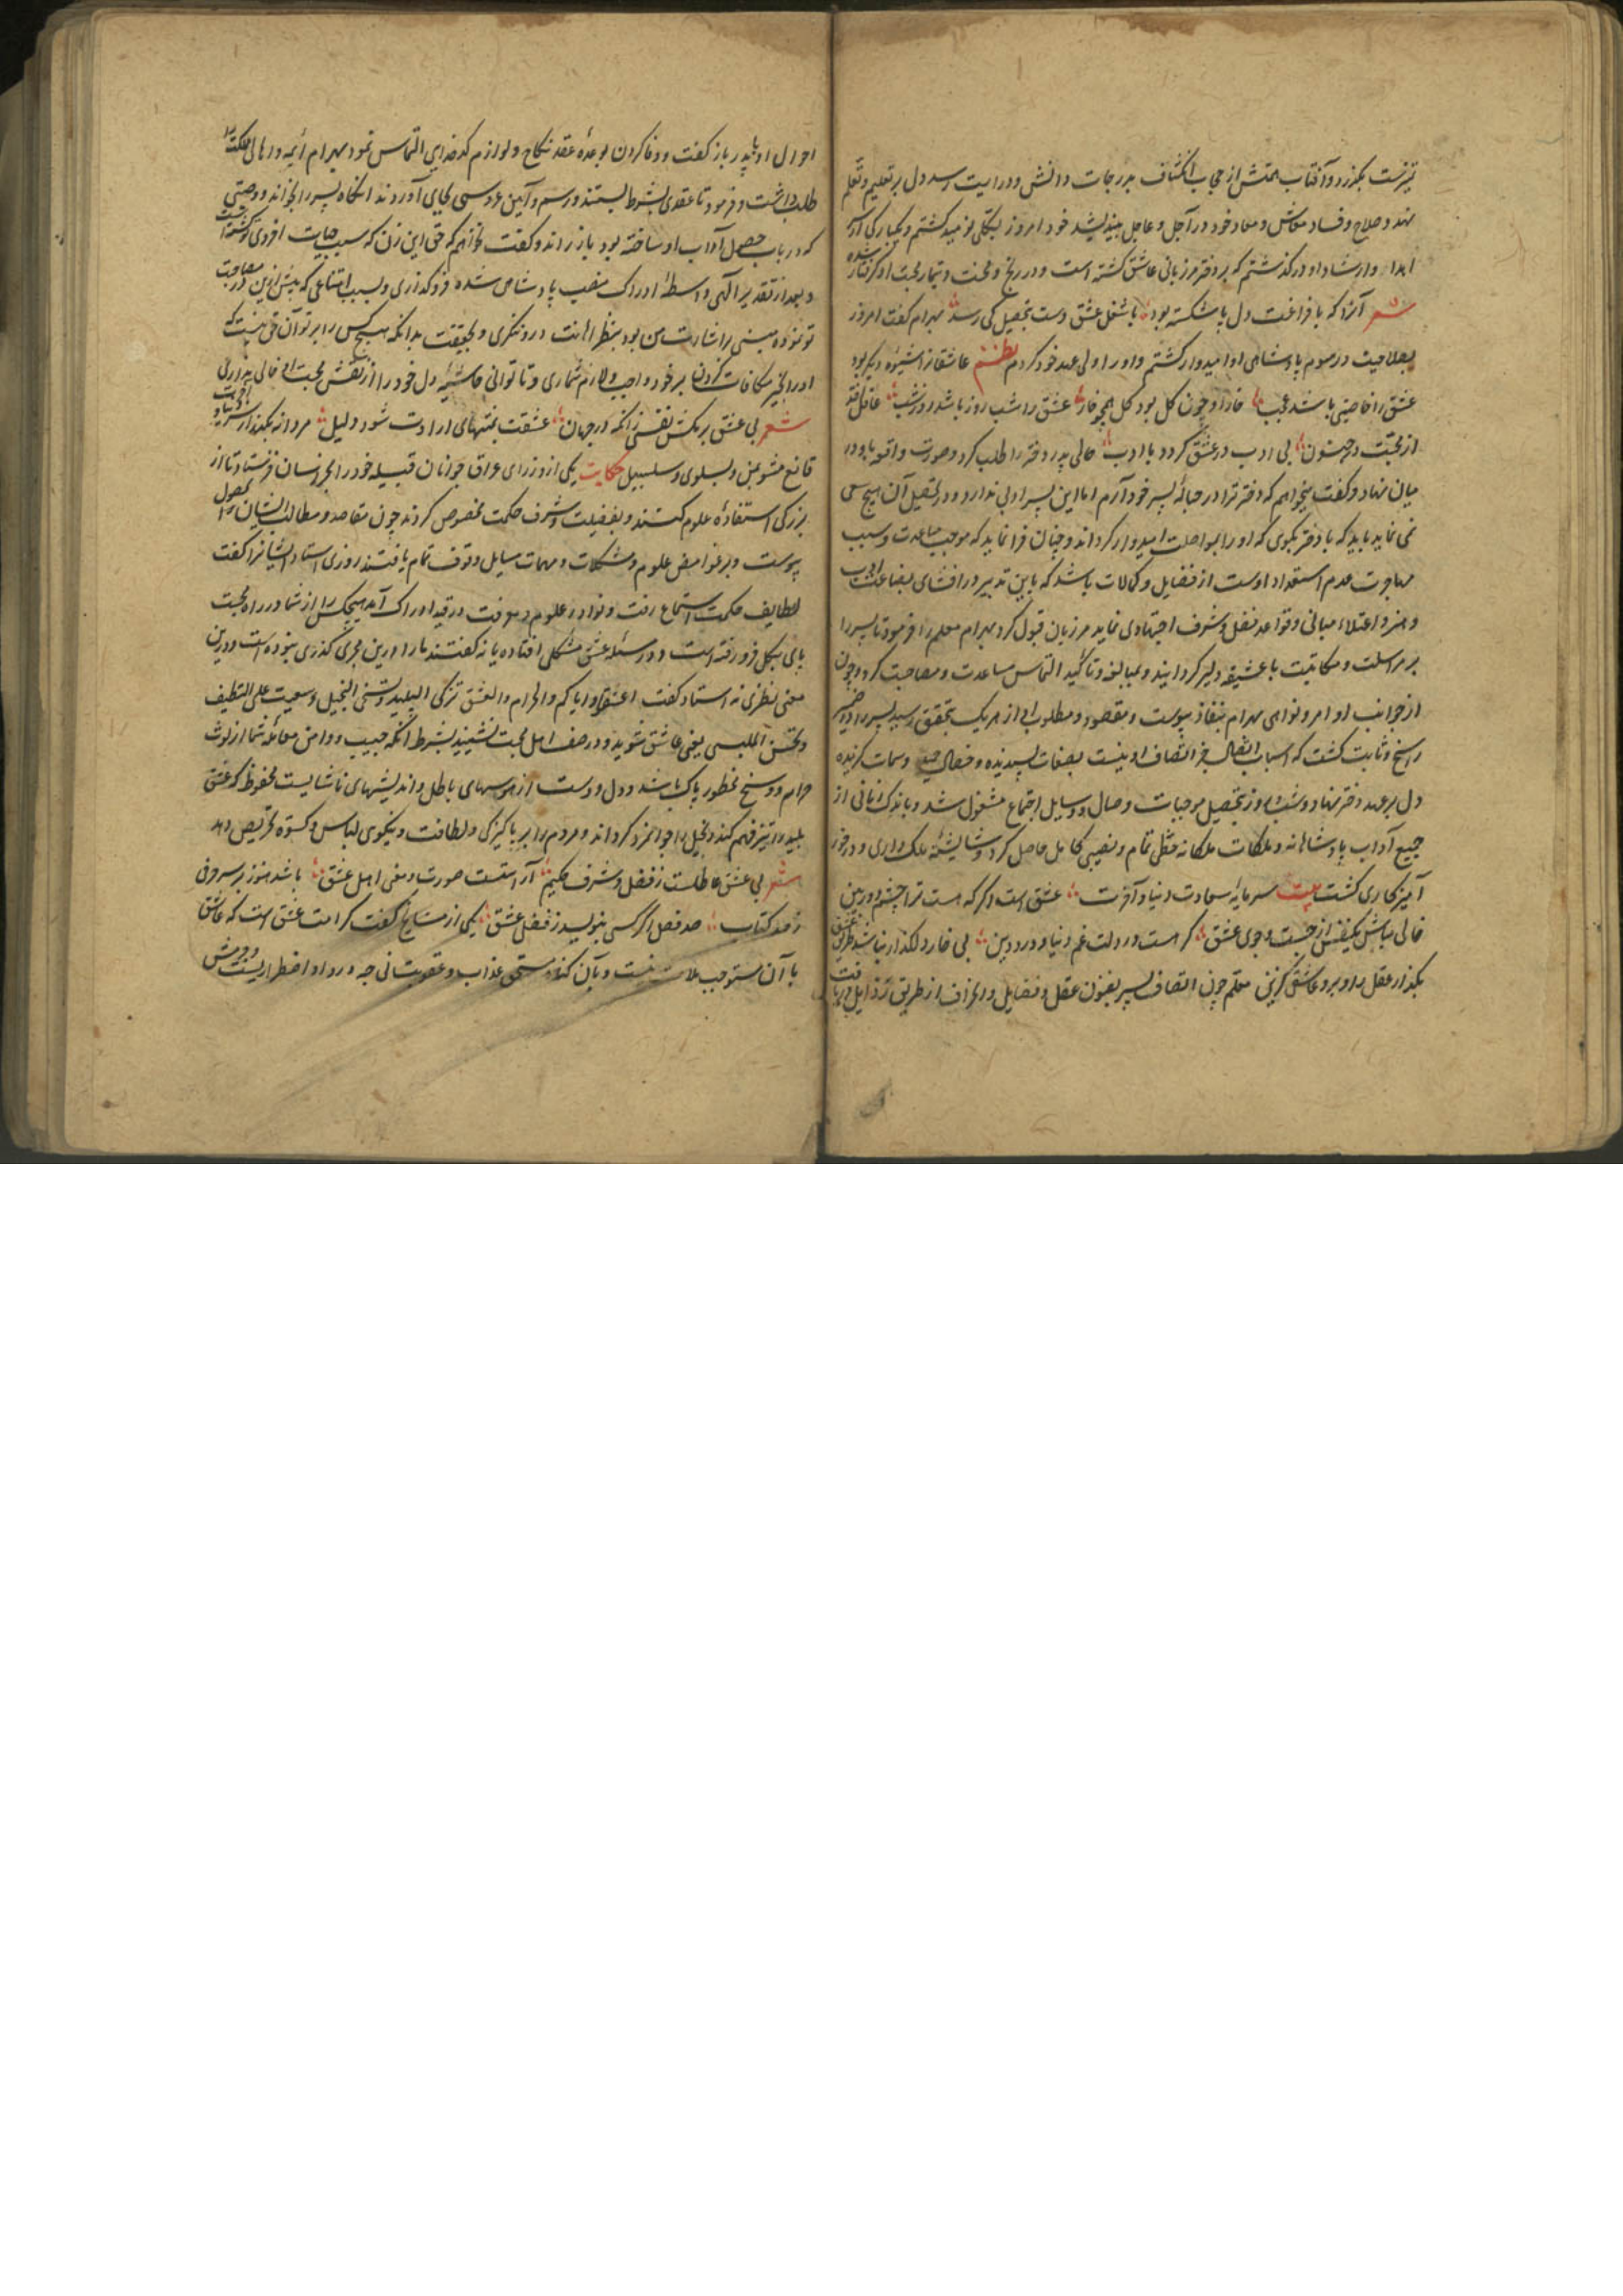 تیزست بگذرد و آفتاب همتش از حجاب انکشاف بدرجات دانش و درایت رسد دل بر تعلیم و تعلم
نهد و صلاح و فساد معاش و معاد خود در آجل و عاجل بیندیشد خود امروز بکلی نومید گشتم و یکبارگی از
و ارشاد او درگذشتم که بر دختر مرزبانی عاشق گشته است و در رنج و محنت و تیمار محبت او گرفتار شده
شعر آنرا که با فراغت دل پا شکسته بود با شغل عشق دست بتحصیل کی رسد بهرام گفت امروز
بصلاحیت و رسوم پادشاهی او امیدوار گشتم و او را ولی عهد خود کردم نظم عاشقانرا شیوه دیگر بود
عشق را خاصیتی باشد عجب خار او چون گل بود گل همچو خار عشق را شب روز باشد روز شب عاقل
از محبت بی ادب در عشق گردد با ادب حالی پدر دختر را طلب کرد و صورت واقعه با او در
میان نهاد و گفت میخواهم که دختر ترا در حباله پسر خود آرم اما این پسر ادبی ندارد و در تحصیل آن هیچ سعی
نمی نماید باید که با دختر بگوی که او را بمواصلت امیدوار گرداند و چنان فرا نماید که موجب مباعدت و سبب
مهاجرت عدم استعداد اوست از فضایل و کمالات باشد که باین تدبیر در بضاعت ادب
و هنر و اعتلاء مبانی و قواعد فضل و شرف اجتهادی نماید مرزبان قبول کرد بهرام معلم را فرمود تا پسر را
بر مراسلت و مکاتبت با عشیقه دلیر گردانید و بمبالغه و تاکید التماس مساعدت و مصاحبت کرد و چون
از جوانب اوامر و نواهی بهرام بنفاذ پیوست و مقصود و مطلوب از هر یک بتحقق رسید پسر را در ضمیر
راسخ و ثابت گشت که اسباب اتصال جز اتصاف او نیست بصفات پسندیده و خصال حمیده و سمات گزیده
دل بر وعده دختر نهاد و شب و روز بتحصیل موجبات وصال و وسایل اجتماع مشغول شد و باندک زمانی از
جمیع آداب پادشاهانه و ملکات ملکانه حظی تمام و نصیبی کامل حاصل کرد و شایسته ملک داری و درخور
گشت بیت سرمایه سعادت دنیا و آخرت عشق است اگر که هست ترا چشم دوربین
خالی مباش یکنفس از جست و جوی عشق گر هست در دلت غم دنیا و درد دین بی خار و گلگذار نباشد طریق عشق
بگذار عقل را و برو عاشقی گزین معلم چون اتصاف پسر بفنون عقل و فضایل و انحراف از طریق رذایل دریافت
احوال او با پدر باز گفت و وفا کردن بوعده عقد نکاح و لوازم کدخدایی التماس نمود بهرام ائمه و اهالی مملکت را
طلب داشت و فرمود تا عقدی بشرط بستند و رسم و آیین عروسی بجای آوردند آنگاه پسر را بخواند و وصیتی
که در باب حصول آداب او ساخته بود باز راند و گفت خواهم که حق این زن که سبب
و بعد از تقدیر الهی واسطه ادراک منصب پادشاهی شده فرو نگذاری و بسبب امتناعی که پیش ازین در مصاحبت
تو نموده مبنی بر اشارت من بود بنظر اهانت درو ننگری و بحقیقت بدانکه هیچ کس را بر تو آن حق نیست که
او را بخیر مکافات کردن بر خود واجب و لازم شماری و تا توانی حاشیه دل خود را از نقش محبت او خالی نداری
شعر بی عشق بر مکش نفسی زانکه در جهان عشقت بمنتهای ارادت شود دلیل مردانه بگذار سر دنیا و آخرت
قانع مشو بمن و بسلوی و سلسبیل حکایت یکی از وزرای عراق جوانان قبیله خود را بخراسان فرستاد تا از
بزرگی استفاده علوم کنند و بفضیلت و شرف حکمت مخصوص گردند چون مقاصد و مطالب ایشان بحصول
پیوست و بر غوامض علوم و مشکلات و مهمات مسایل وقوف تمام یافتند روزی استاد ایشانرا گفت
لطایف حکمت استماع رفت و نوادر علوم و معرفت در قید ادراک آمد هیچکس را از شما در راه محبت
پای بگل فرو رفته است و در مسئله عشق مشکلی افتاده یا نه گفتند ما را درین مجری گذری نبوده است و درین
معنی نظری نه استاد گفت اعشقوا و ایاکم والحرام والعشق تزکی البلید وتسخی البخیل وتبعث علی التنظیف
وتحسن الملبس یعنی عاشق شوید و در صف اهل محبت نشینید بشرط آنکه جیب و دامن معامله شما از لوث
حرام و وسخ محظور پاک باشد و دل و دست از هوسهای باطل و اندیشهای ناشایست محفوظ که عشق
بلید را تیز فهم کند و بخیل را جوانمرد گرداند و مردم را بر پاکیزگی و لطافت و نیکوی لباس و کسوه تحریص دهد
شعر بی عشق عاطلست ز فضل و شرف حکیم آراستست صورت و معنی اهل عشق باشد هنوز بر سر حرفی
ز صد کتاب صد فصل اگر کسی بنویسد ز فضل عشق یکی از مشایخ گفت کرامت عشق است که عاشق
با آن مستوجب ملامت نیست و بآن گناه مستحق عذاب و عقوبت نی چه درد او اضطراریست و جوشش